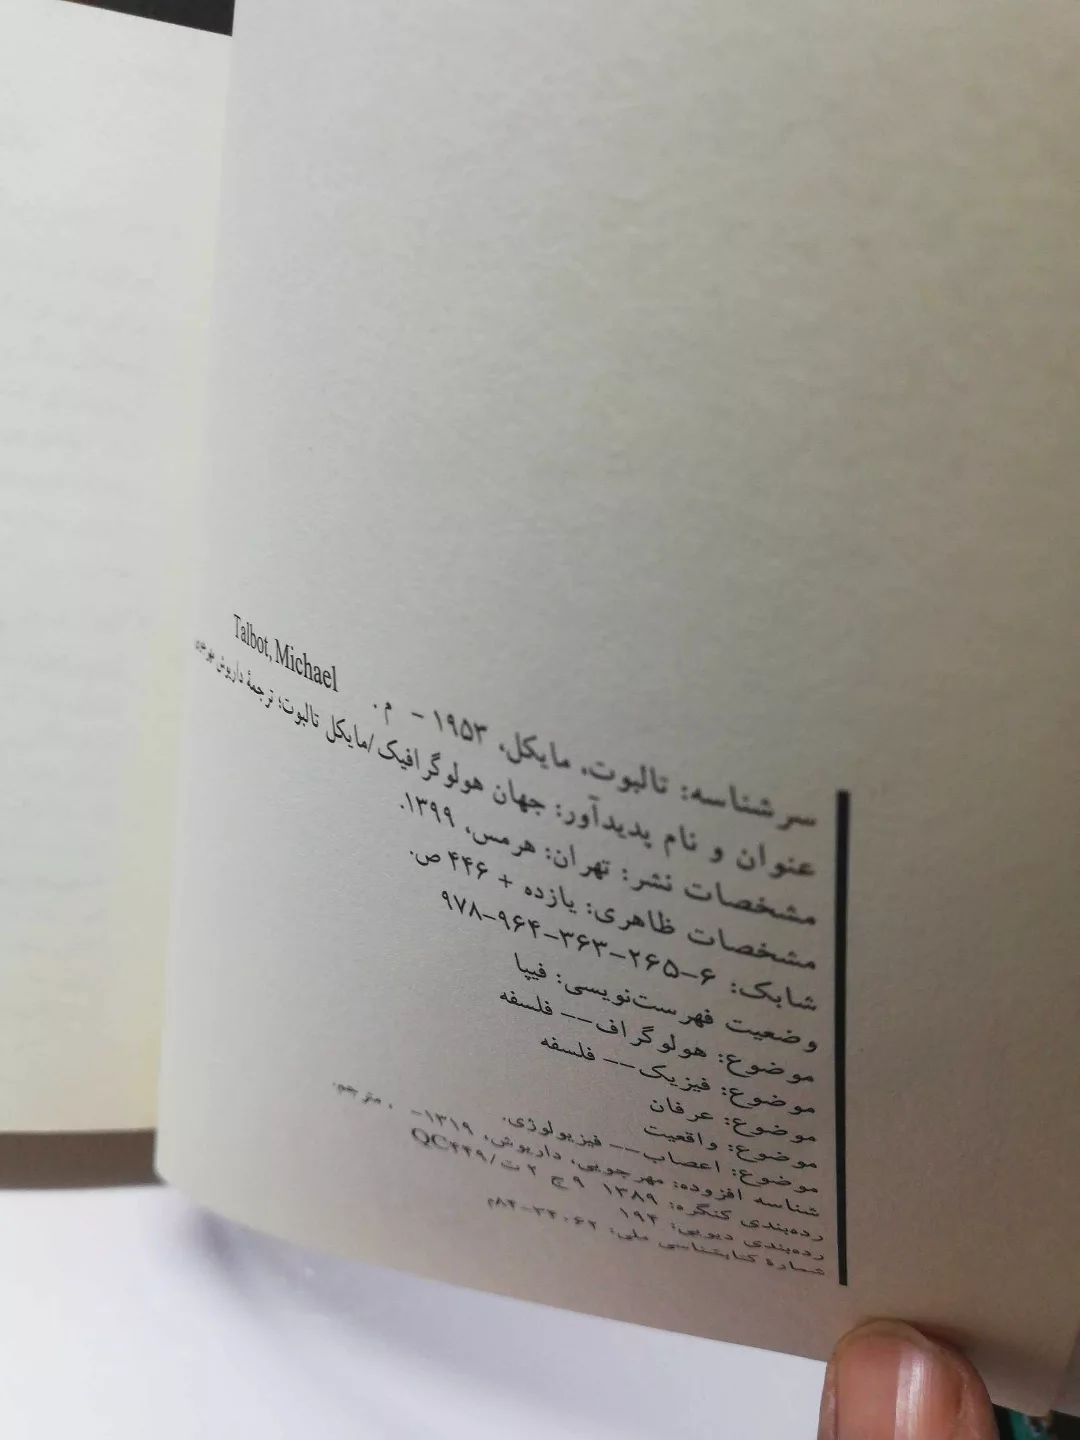 سرشناسه: تالبوت، مایکل، ۱۹۵۳ - م. Talbot, Michael
عنوان و نام پدیدآور: جهان هولوگرافیک/مایکل تالبوت؛ ترجمهٔ داریوش مهرجویی
مشخصات نشر: تهران: هرمس، ۱۳۹۹.
مشخصات ظاهری: یازده + ۴۴۶ ص.
شابک: ۶-۲۶۵-۳۶۳-۹۶۴-۹۷۸
وضعیت فهرست‌نویسی: فیپا
موضوع: هولوگراف -- فلسفه
موضوع: فیزیک -- فلسفه
موضوع: عرفان
موضوع: واقعیت
موضوع: اعصاب -- فیزیولوژی.
شناسه افزوده: مهرجویی، داریوش، ۱۳۱۹- ، مترجم.
رده‌بندی کنگره: ۱۳۸۹ ۹ج ۲ت/QC۴۴۹
رده‌بندی دیویی: ۱۹۳
شماره کتابشناسی ملی: